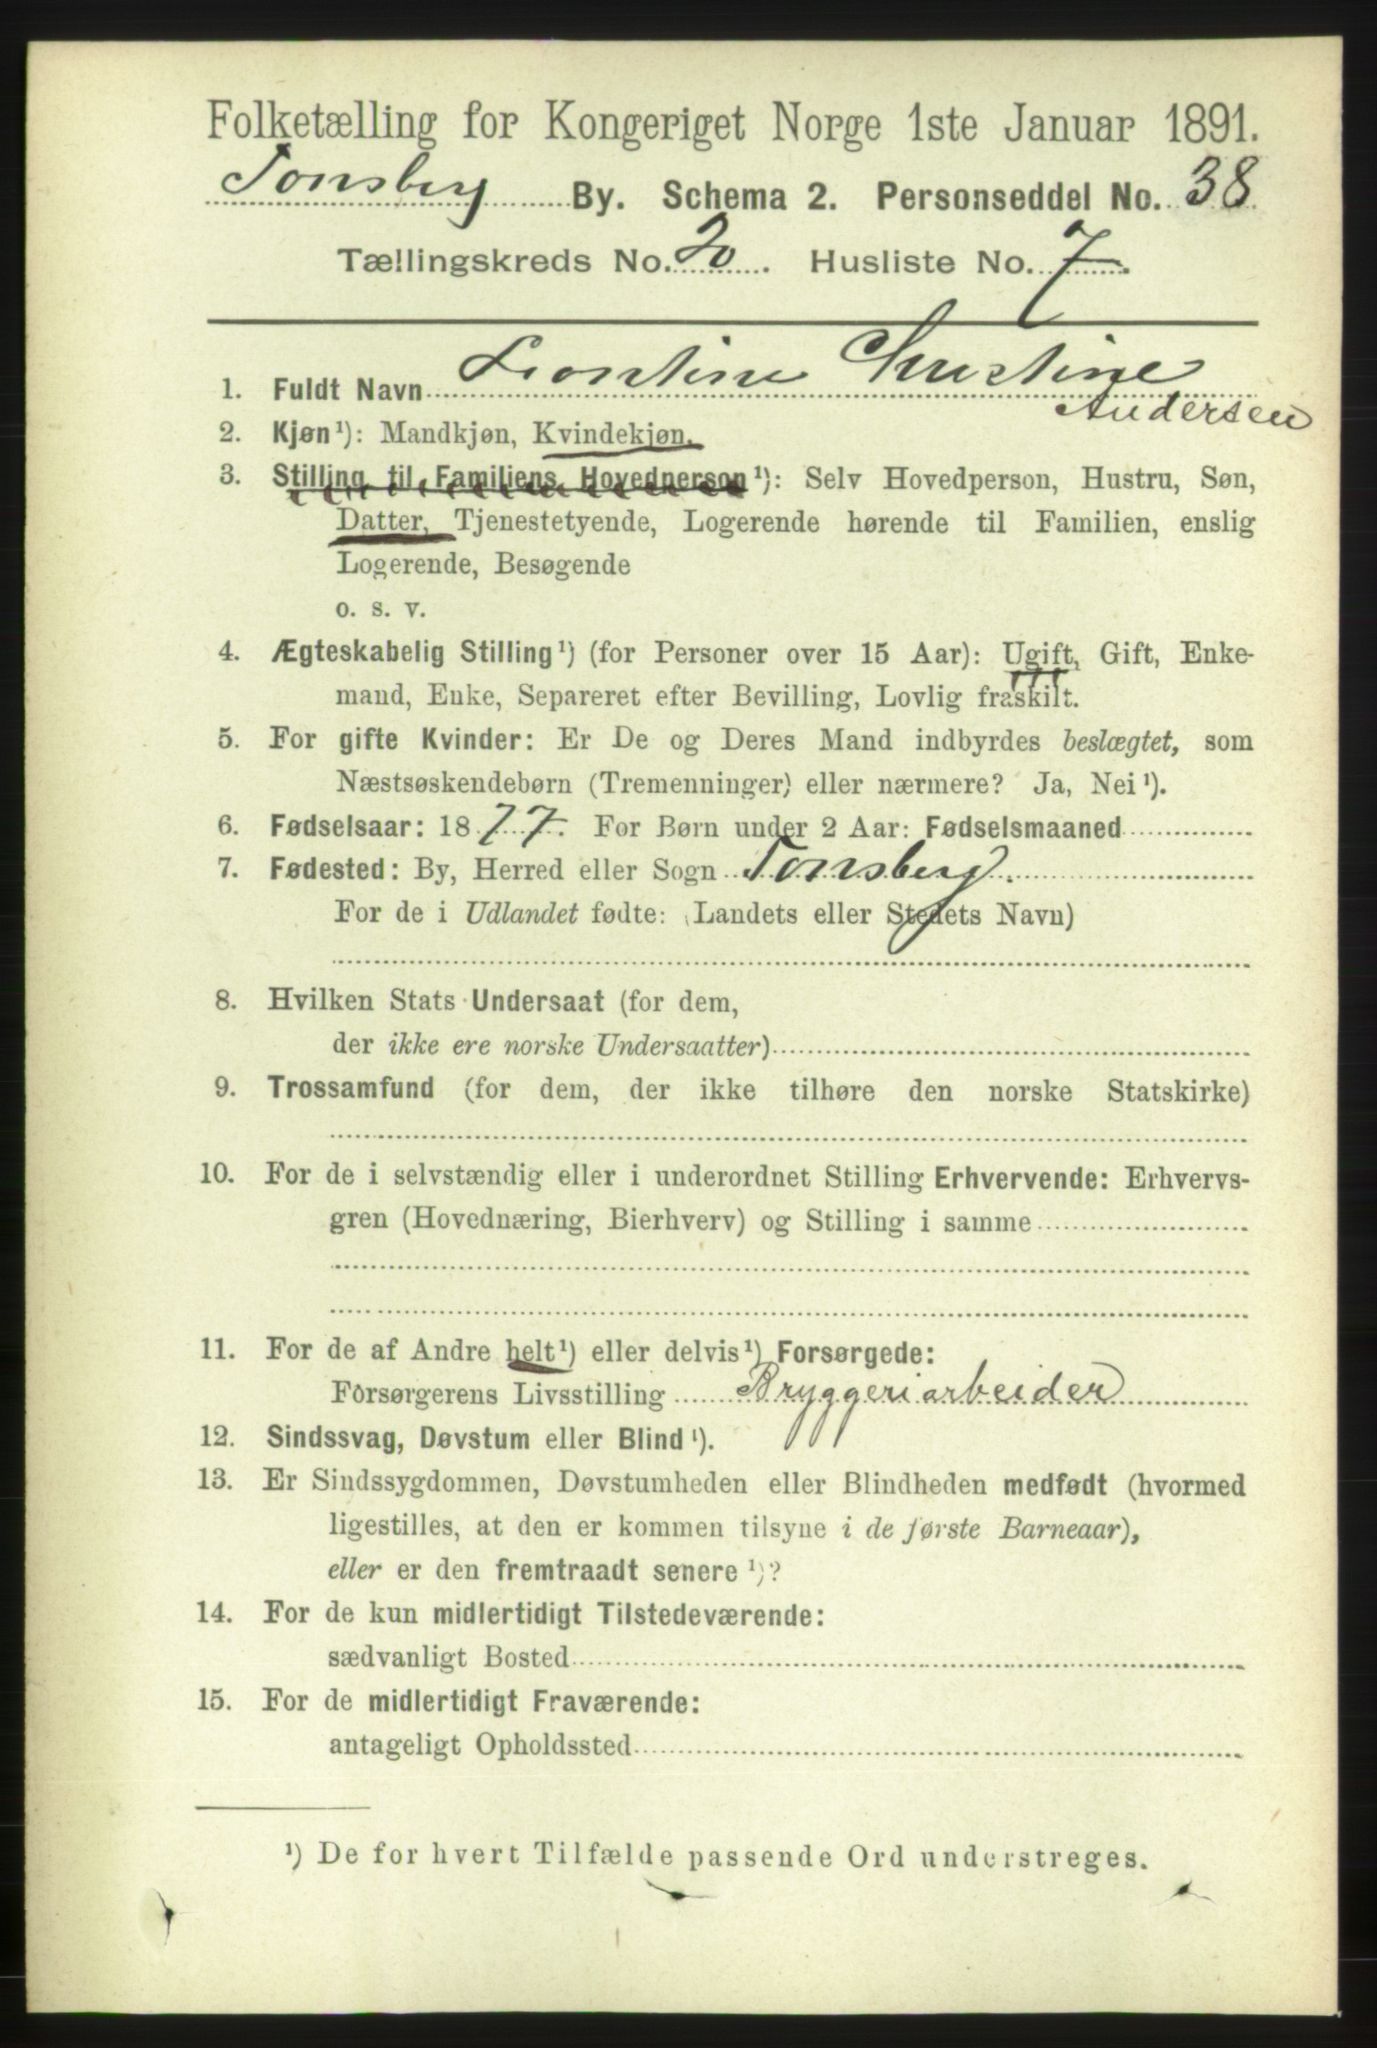 Folketælling for Kongeriget Norge 1ste Januar 1891.
Tonsberg By. Schema 2. Personseddel No. 38
Tællingskreds No. 20. Husliste No. 7.
1. Fuldt Navn Leontine Christine
Andersen
2. Kjøn¹): Mandkjøn, Kvindekjøn.
3. Stilling til Familiens Hovedperson¹): Selv Hovedperson, Hustru, Søn,
Datter, Tjenestetyende, Logerende hørende til Familien, enslig
Logerende, Besøgende
o. s. v.
4. Ægteskabelig Stilling¹) (for Personer over 15 Aar): Ugift, Gift, Enke-
mand, Enke, Separeret efter Bevilling, Lovlig fraskilt.
5. For gifte Kvinder: Er De og Deres Mand indbyrdes beslægtet, som
Næstsøskendebørn (Tremenninger) eller nærmere? Ja, Nei¹).
6. Fødselsaar: 1877. For Børn under 2 Aar: Fødselsmaaned
7. Fødested: By, Herred eller Sogn Tonsberg.
For de i Udlandet fødte: (Landets eller Stedets Navn)
8. Hvilken Stats Undersaat (for dem,
der ikke ere norske Undersaatter)
9. Trossamfund (for dem, der ikke tilhøre den norske Statskirke)
10. For de i selvstændig eller i underordnet Stilling Erhvervende: Erhvervs-
gren (Hovednæring, Bierhverv) og Stilling i samme
11. For de af Andre helt¹) eller delvis¹) Forsørgede:
Forsørgerens Livsstilling Bryggeriarbeider
12. Sindssvag, Døvstum eller Blind¹).
13. Er Sindssygdommen, Døvstumheden eller Blindheden medfødt (hvormed
ligestilles, at den er kommen tilsyne i de første Barneaar),
eller er den fremtraadt senere¹)?
14. For de kun midlertidigt Tilstedeværende:
sædvanligt Bosted
15. For de midlertidigt Fraværende:
antageligt Opholdssted
¹) De for hvert Tilfælde passende Ord understreges.